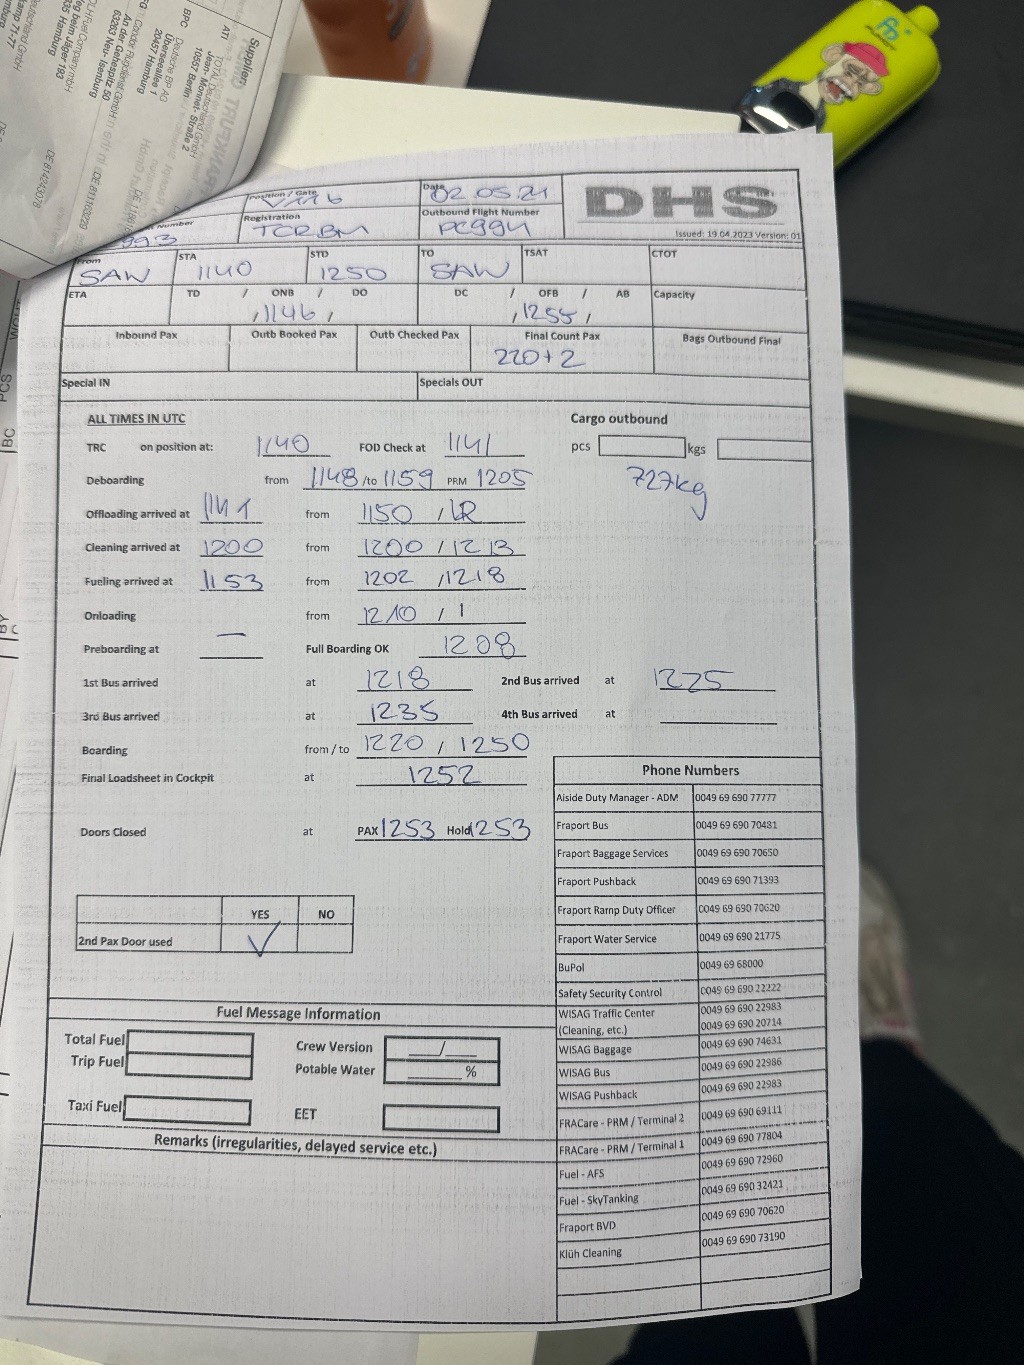 Supplier:
ATI TOTAL Deutschland GmbH
Jean- Monnet- Straße 2
10557 Berlin
BPC Deutsche BP AG
Überseeallee 1
20457 Hamburg
An der Gehespitz 50
63263 Neu- Isenburg
DE 814243078
Position / Gate
V116
Date
02.05.24
DHS
Issued: 19.04.2023 Version: 01
Number
993
Registration
TCRBM
Outbound Flight Number
PC994
From
SAW
STA
1140
STD
1250
TO
SAW
TSAT
CTOT
ETA
TD / ONB / DO
, 1146 ,
DC / OFB / AB
, 1255 ,
Capacity
Inbound Pax
Outb Booked Pax
Outb Checked Pax
Final Count Pax
220+2
Bags Outbound Final
Special IN
Specials OUT
ALL TIMES IN UTC
Cargo outbound
TRC on position at: 1140 FOD Check at 1141
pcs kgs
727kg
Deboarding from 1148 /to 1159 PRM 1205
Offloading arrived at 1141 from 1150 /
Cleaning arrived at 1200 from 1200 / 1213
Fueling arrived at 1153 from 1202 / 1218
Onloading from 1210 /
Preboarding at — Full Boarding OK 1208
1st Bus arrived at 1218 2nd Bus arrived at 1225
3rd Bus arrived at 1235 4th Bus arrived at
Boarding from / to 1220 / 1250
Final Loadsheet in Cockpit at 1252
Doors Closed at PAX 1253 Hold 1253
YES NO
2nd Pax Door used ✓
Phone Numbers
Aiside Duty Manager - ADM 0049 69 690 77777
Fraport Bus 0049 69 690 70481
Fraport Baggage Services 0049 69 690 70650
Fraport Pushback 0049 69 690 71393
Fraport Ramp Duty Officer 0049 69 690 70620
Fraport Water Service 0049 69 690 21775
BuPol 0049 69 68000
Safety Security Control 0049 69 690 22222
WISAG Traffic Center 0049 69 690 22983
(Cleaning, etc.) 0049 69 690 20714
WISAG Baggage 0049 69 690 74631
WISAG Bus 0049 69 690 22986
WISAG Pushback 0049 69 690 22983
FRACare - PRM / Terminal 2 0049 69 690 69111
FRACare - PRM / Terminal 1 0049 69 690 77804
Fuel - AFS 0049 69 690 72960
Fuel - SkyTanking 0049 69 690 32421
Fraport BVD 0049 69 690 70620
Klüh Cleaning 0049 69 690 73190
Fuel Message Information
Total Fuel
Trip Fuel
Taxi Fuel
Crew Version /
Potable Water %
EET
Remarks (irregularities, delayed service etc.)